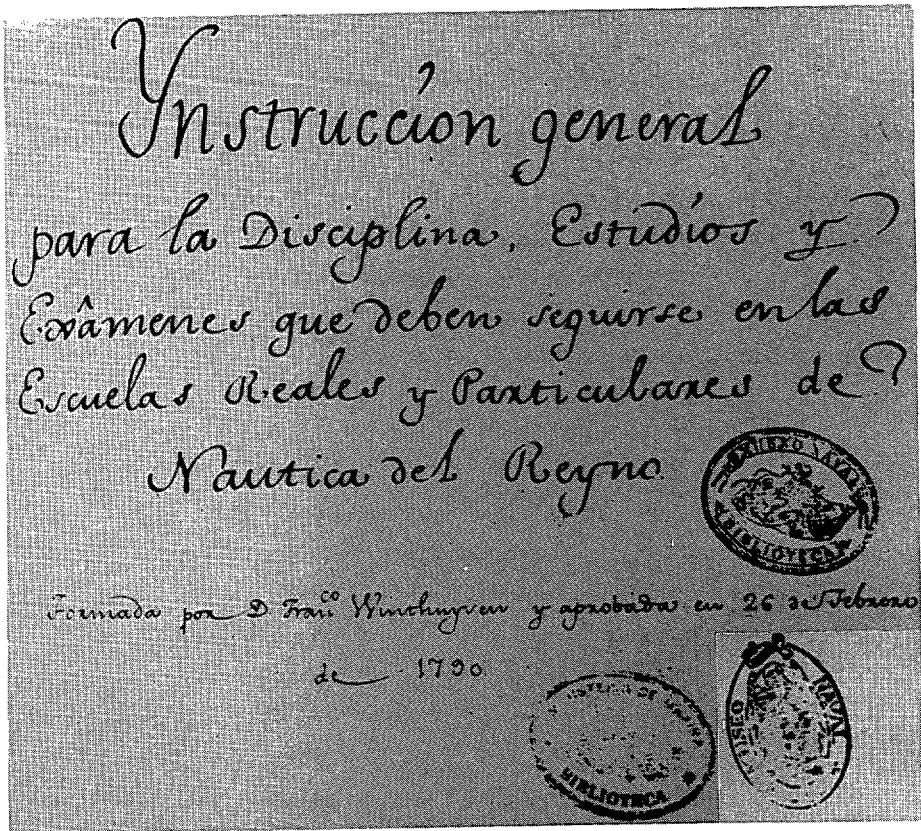 Ynstrucción general
para la Disciplina, Estudios y
Exâmenes que deben seguirse en las
Escuelas Reales y Particulares de
Nautica del Reyno
MUSEO NAVAL
BIBLIOTECA
Formada por D. Fran.co Winthuyven y aprobada en 26 de Febrero
de 1790
MINISTERIO DE MARINA
BIBLIOTECA
MUSEO NAVAL